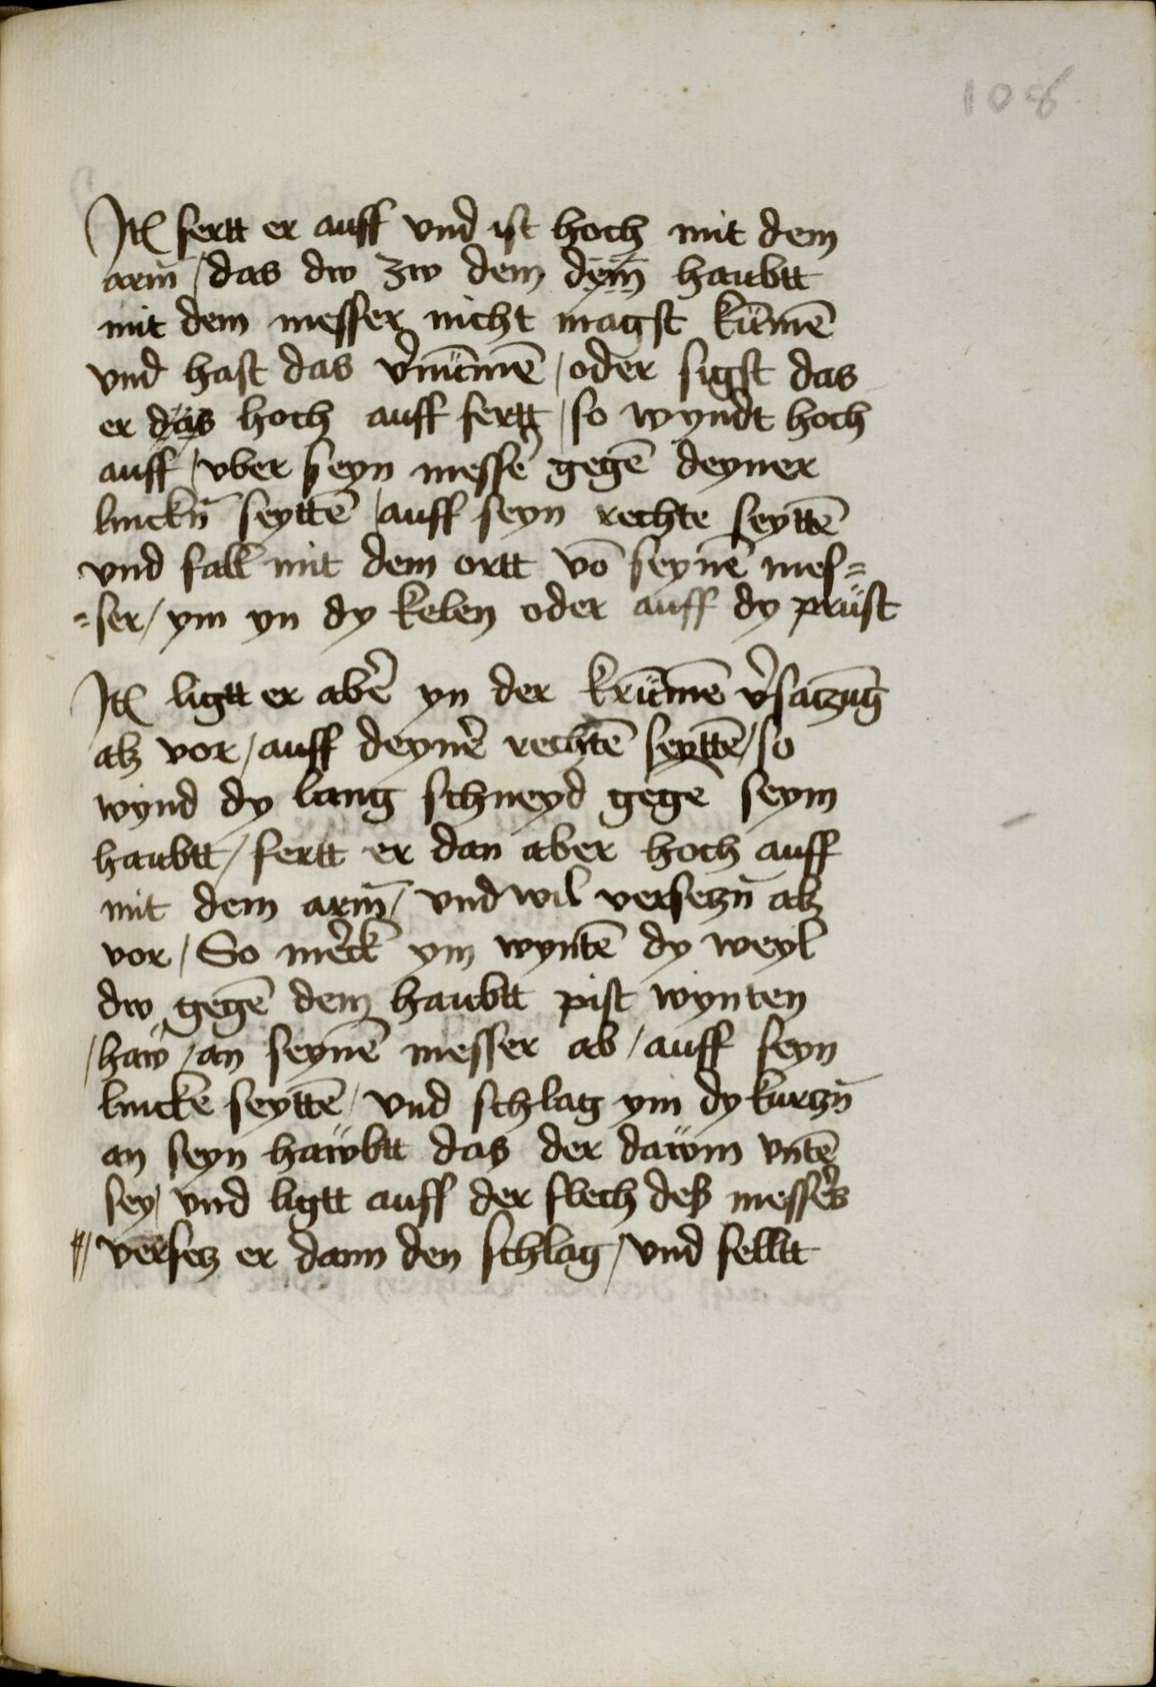 108
Itẽ fertt er auff vnd ist hoch mit dem
arm̄ / das dw zw dem dem̄ haubtt
mit dem messer nicht magst kūmē
vnd hast das v̉nūmē / oder sigst das
er das hoch auff fertt / so wyndt hoch
auff / vber seyn messẻ gegē deyner
linckn̄ seyttē / auff seyn rechte seyttē
vnd fall mit dem ortt vō seynē mes=
=ser / ym yn dy kelen oder auff dy prüst
Itẽ ligtt er abẻ yn der krūmē v̉satzūg
alz vor / auff deynẻ rechtē seyttē / so
wynd dy lang schneyd gegē seym
haubtt / fertt er dan aber hoch auff
mit dem arm̄ / vnd wil versetzn̄ alz
vor / So mẻck ym wyntē dy weyl
dw gegē dem haubtt pist wynten
/ haw / an seynē messer ab / auff seyn
linckē seyttē / vnd schlag ym dy kurtzn̄
an seyn hawbtt das der dawm vntē
sey / vnd ligtt auff der flech deß messẻs
// versetz er dann den schlag / vnd felltt